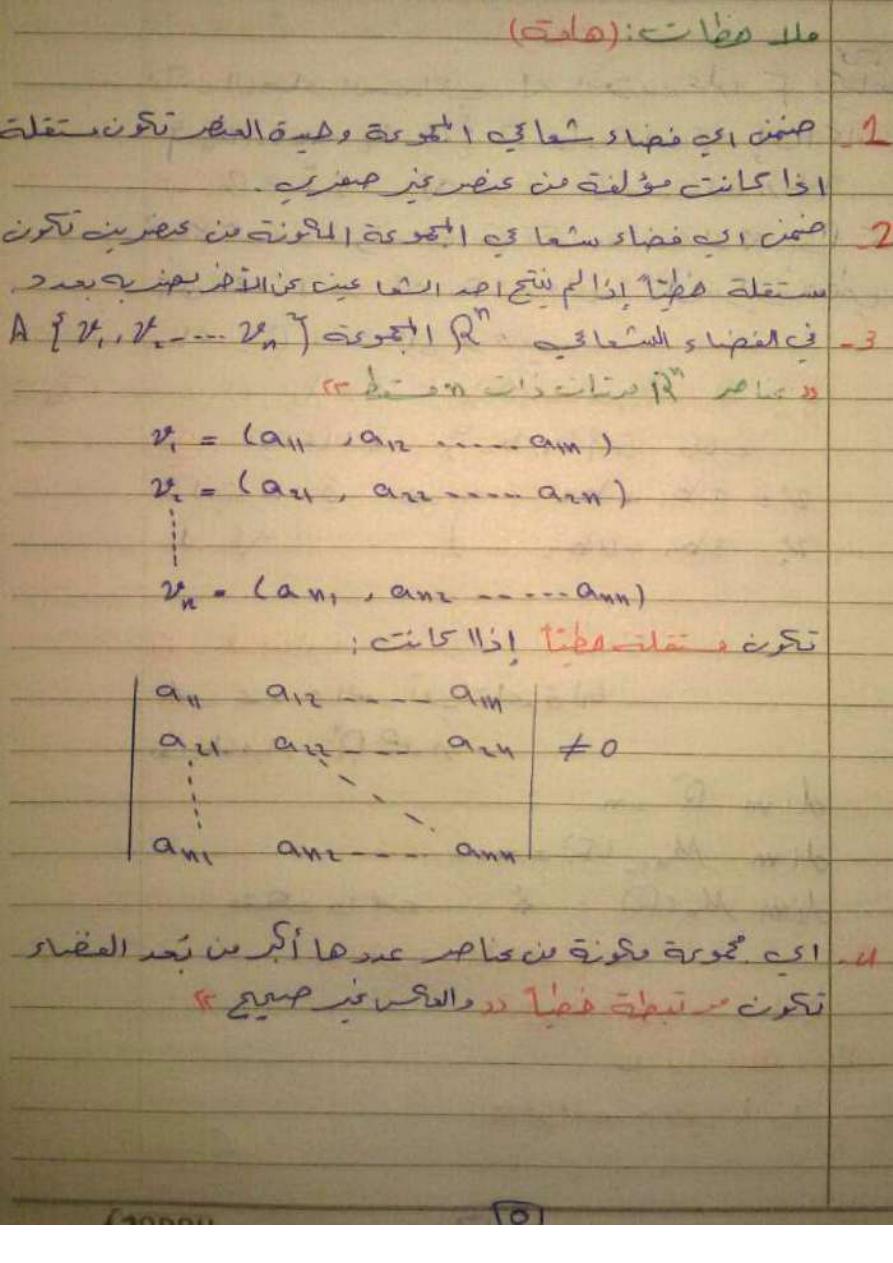 ملاحظات: (هامة)
1- ضمن اي فضاء شعاعي المجموعة وحيدة العنصر تكون مستقلة
اذا كانت مؤلفة من عنصر غير صفري.
2- ضمن اي فضاء شعاعي المجموعة المكونة من عنصرين تكون
مستقلة خطياً إذا لم ينتج احد الشعاعين عن الآخر بضربه بعدد.
3- في الفضاء الشعاعي Rⁿ المجموعة A {v₁, v₂ ---- vₙ}
«عناصر Rⁿ مرتبات ذات n مسقط»
v₁ = (a₁₁ , a₁₂ ..... a₁ₙ)
v₂ = (a₂₁ , a₂₂ ..... a₂ₙ)
vₙ = (aₙ₁ , aₙ₂ ...... aₙₙ)
تكون مستقلة خطياً إذا كانت:
| a₁₁ a₁₂ ---- a₁ₙ |
| a₂₁ a₂₂ ---- a₂ₙ | ≠ 0
| aₙ₁ aₙ₂ ---- aₙₙ |
4- اي مجموعة مكونة من عناصر عددها أكبر من بُعد الفضاء
تكون مرتبطة خطياً «والعكس غير صحيح»
5